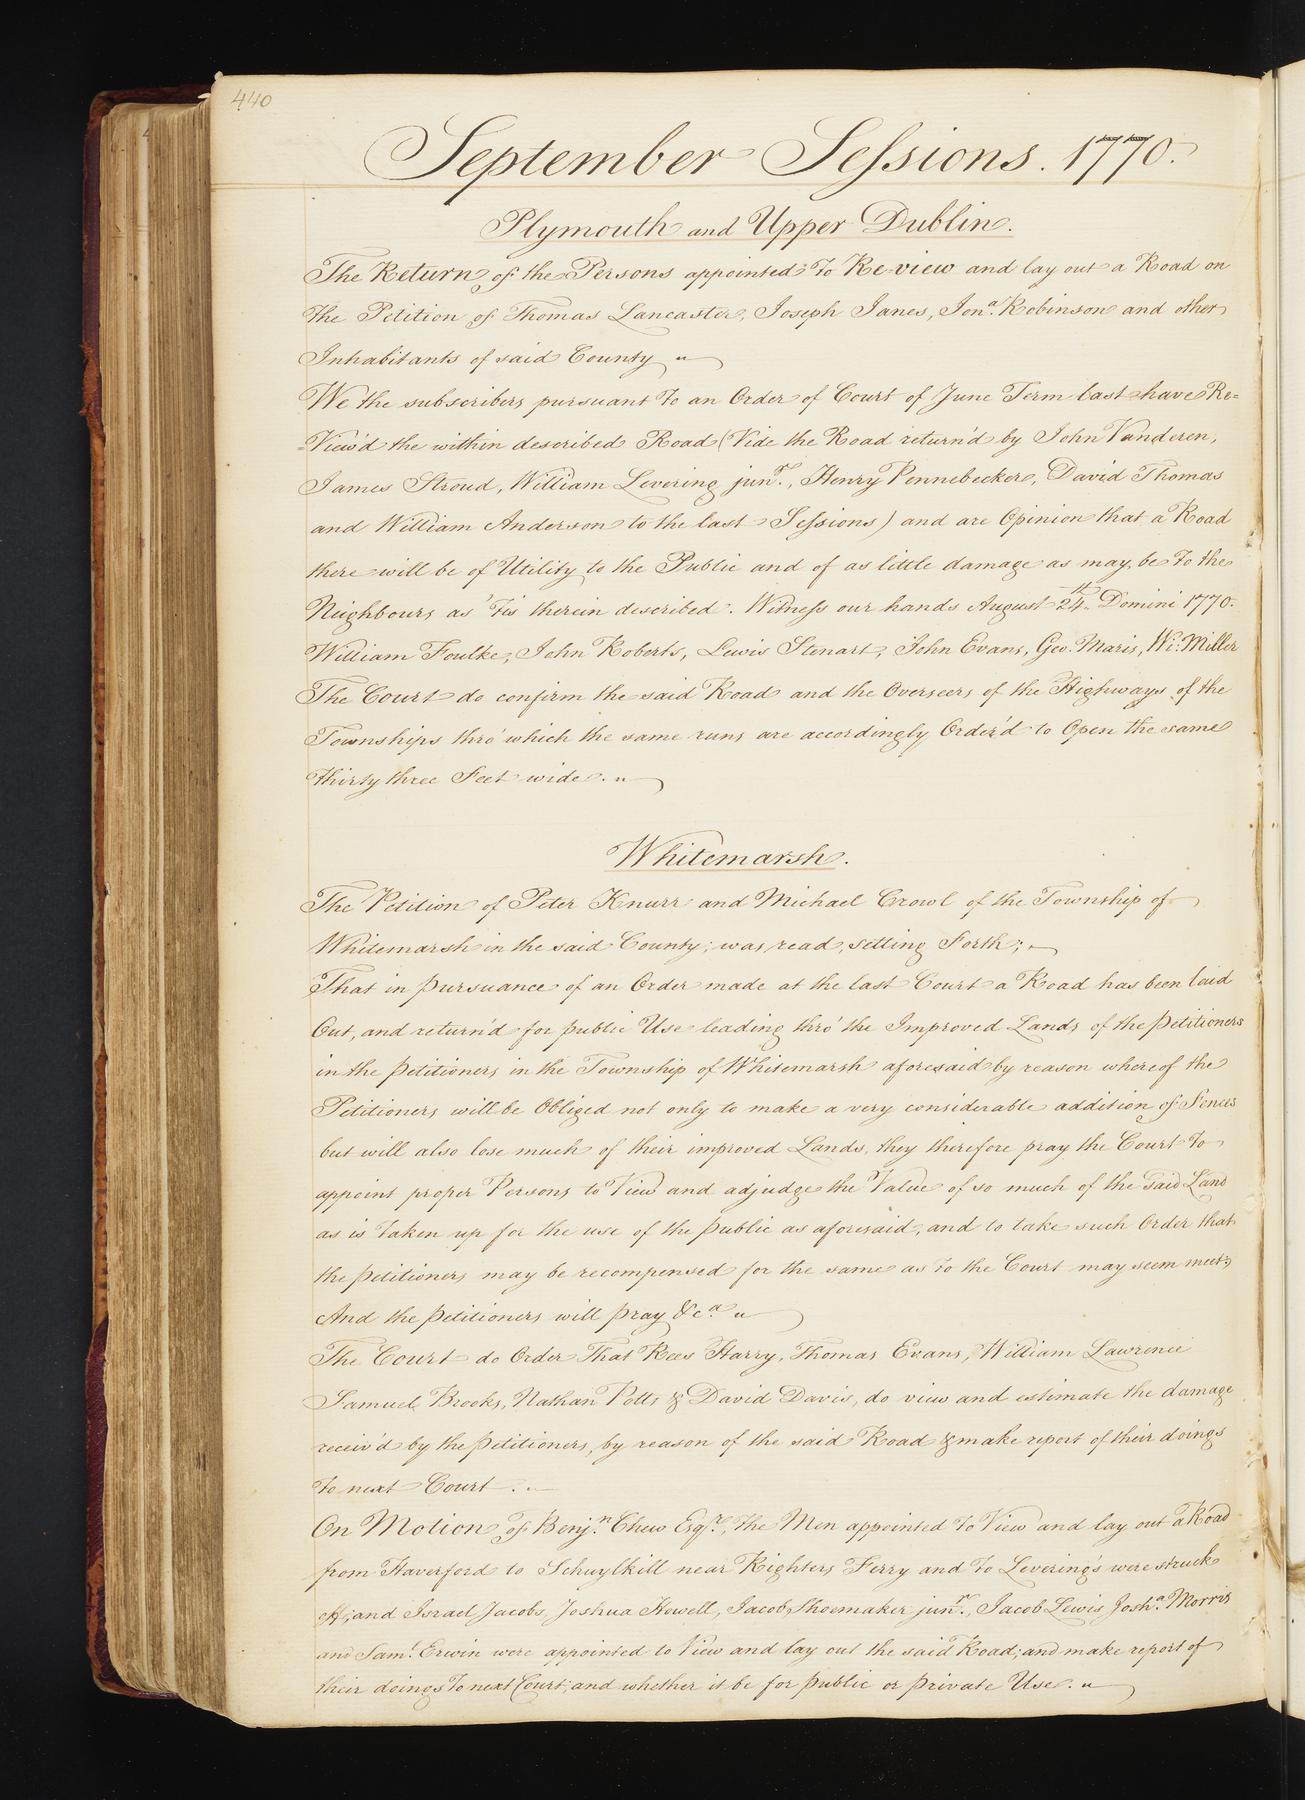 440
September Sessions. 1770.
Plymouth and Upper Dublin.
The Return of the Persons appointed to Re-view and lay out a Road on
the Petition of Thomas Lancaster, Joseph Janes, Jona. Robinson and other
Inhabitants of said County "
We the subscribers pursuant to an Order of Court of June Term last have Re=
=View'd the within described Road (Vide the Road return'd by John Vanderen,
James Stroud, William Levering junr., Henry Pennebecker, David Thomas
and William Anderson to the last Sessions) and are Opinion that a Road
there will be of Utility to the Public and of as little damage as may be to the
Neighbours as 'tis therein described. Witness our hands August 24th. Domini 1770.
William Foulke, John Roberts, Lewis Stenart, John Evans, Geo. Maris, Wi: Miller
The Court do confirm the said Road and the Overseers of the Highways of the
Townships thro' which the same runs are accordingly Order'd to Open the same
thirty three Feet wide. "
Whitemarsh.
The Petition of Peter Knurr and Michael Crowl of the Township of
Whitemarsh in the said County; was read, setting Forth;
That in pursuance of an Order made at the last Court a Road has been laid
Out, and return'd for public Use leading thro' the Improved Lands of the petitioners
in the petitioners in the Township of Whitemarsh aforesaid by reason whereof the
Petitioners will be Obliged not only to make a very considerable addition of Fences
but will also lose much of their improved Lands, they therefore pray the Court to
appoint proper Persons to View and adjudge the Value of so much of the said Land
as is taken up for the use of the public as aforesaid, and to take such Order that
the petitioners may be recompensed for the same as to the Court may seem meet;
And the petitioners will pray &ca. "
The Court do Order That Rees Harry, Thomas Evans, William Lawrence
Samuel Brooks, Nathan Potts & David Davis, do view and estimate the damage
receiv'd by the petitioners, by reason of the said Road & make report of their doings
to next Court.
On Motion of Benjn. Chew Esqr., the Men appointed to View and lay out a Road
from Haverford to Schuylkill near Righters Ferry and to Levering's were struck
off; and Israel Jacobs, Joshua Howell, Jacob Shoemaker junr., Jacob Lewis Josha. Morris
and Saml. Erwin were appointed to View and lay out the said Road; and make report of
their doings to next Court; and whether it be for public or private Use. "